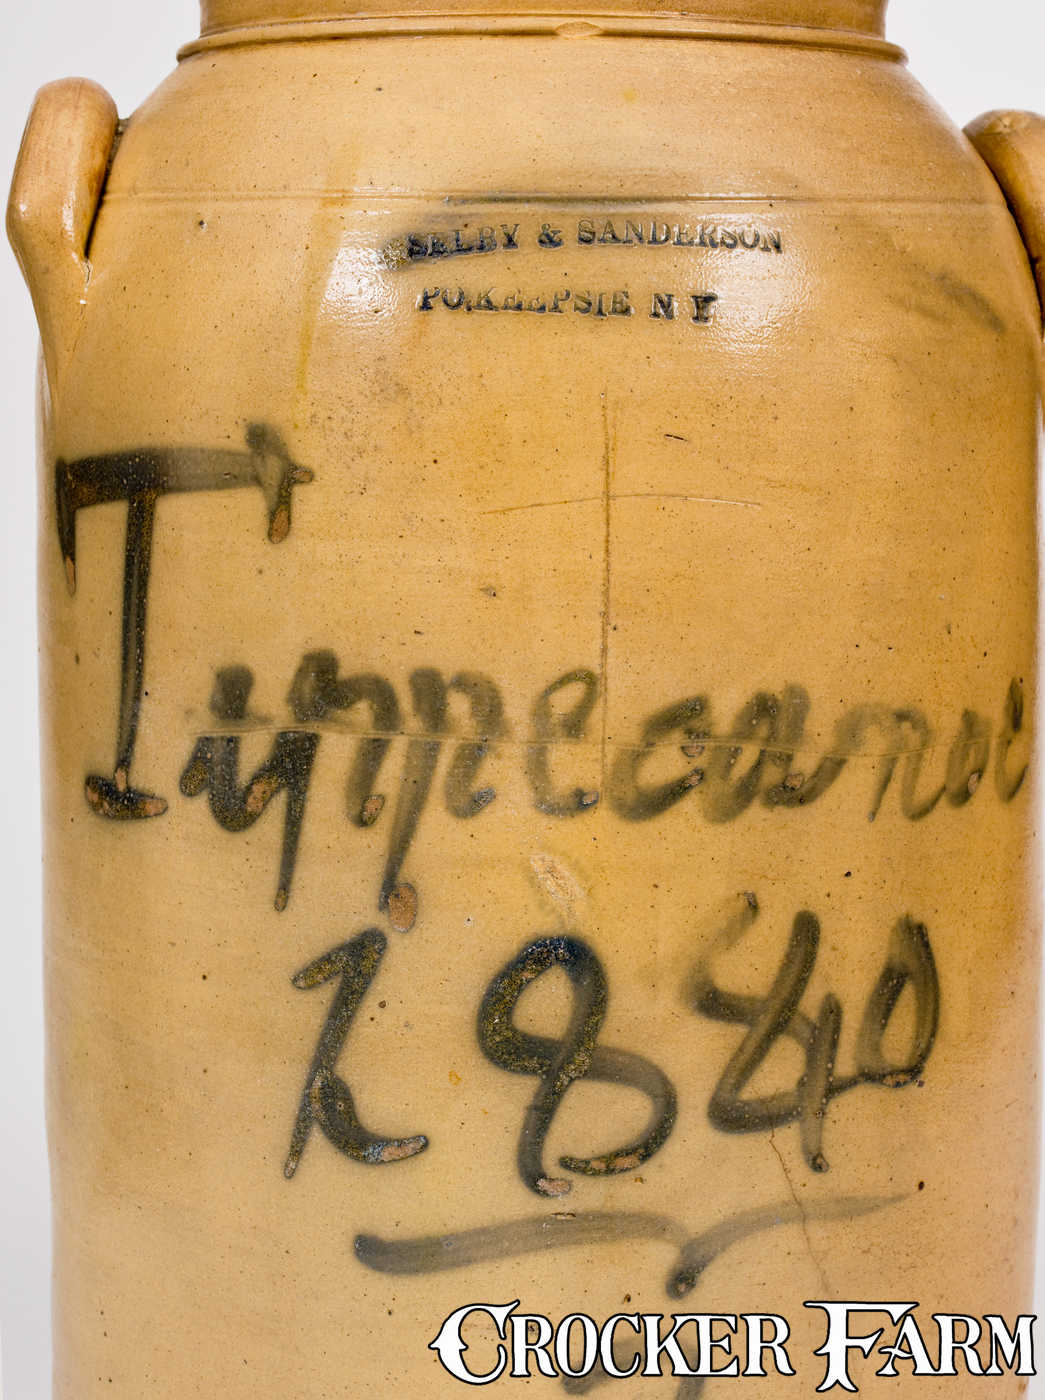 SELBY & SANDERSON
PO,KEEPSIE N Y
Tippecanoe
1840
CROCKER FARM